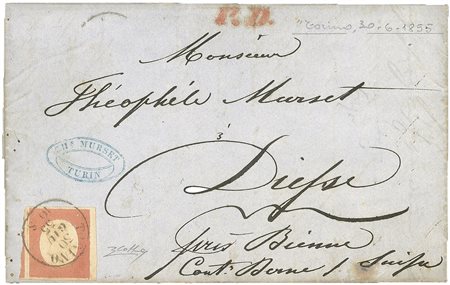 P.D.
Torino, 30-6-1855
Monsieur
Théophile Murset
à
Diesse
près Bienne
Cont. Berne / Suisse
CHS MURSET
TURIN
30 GIU